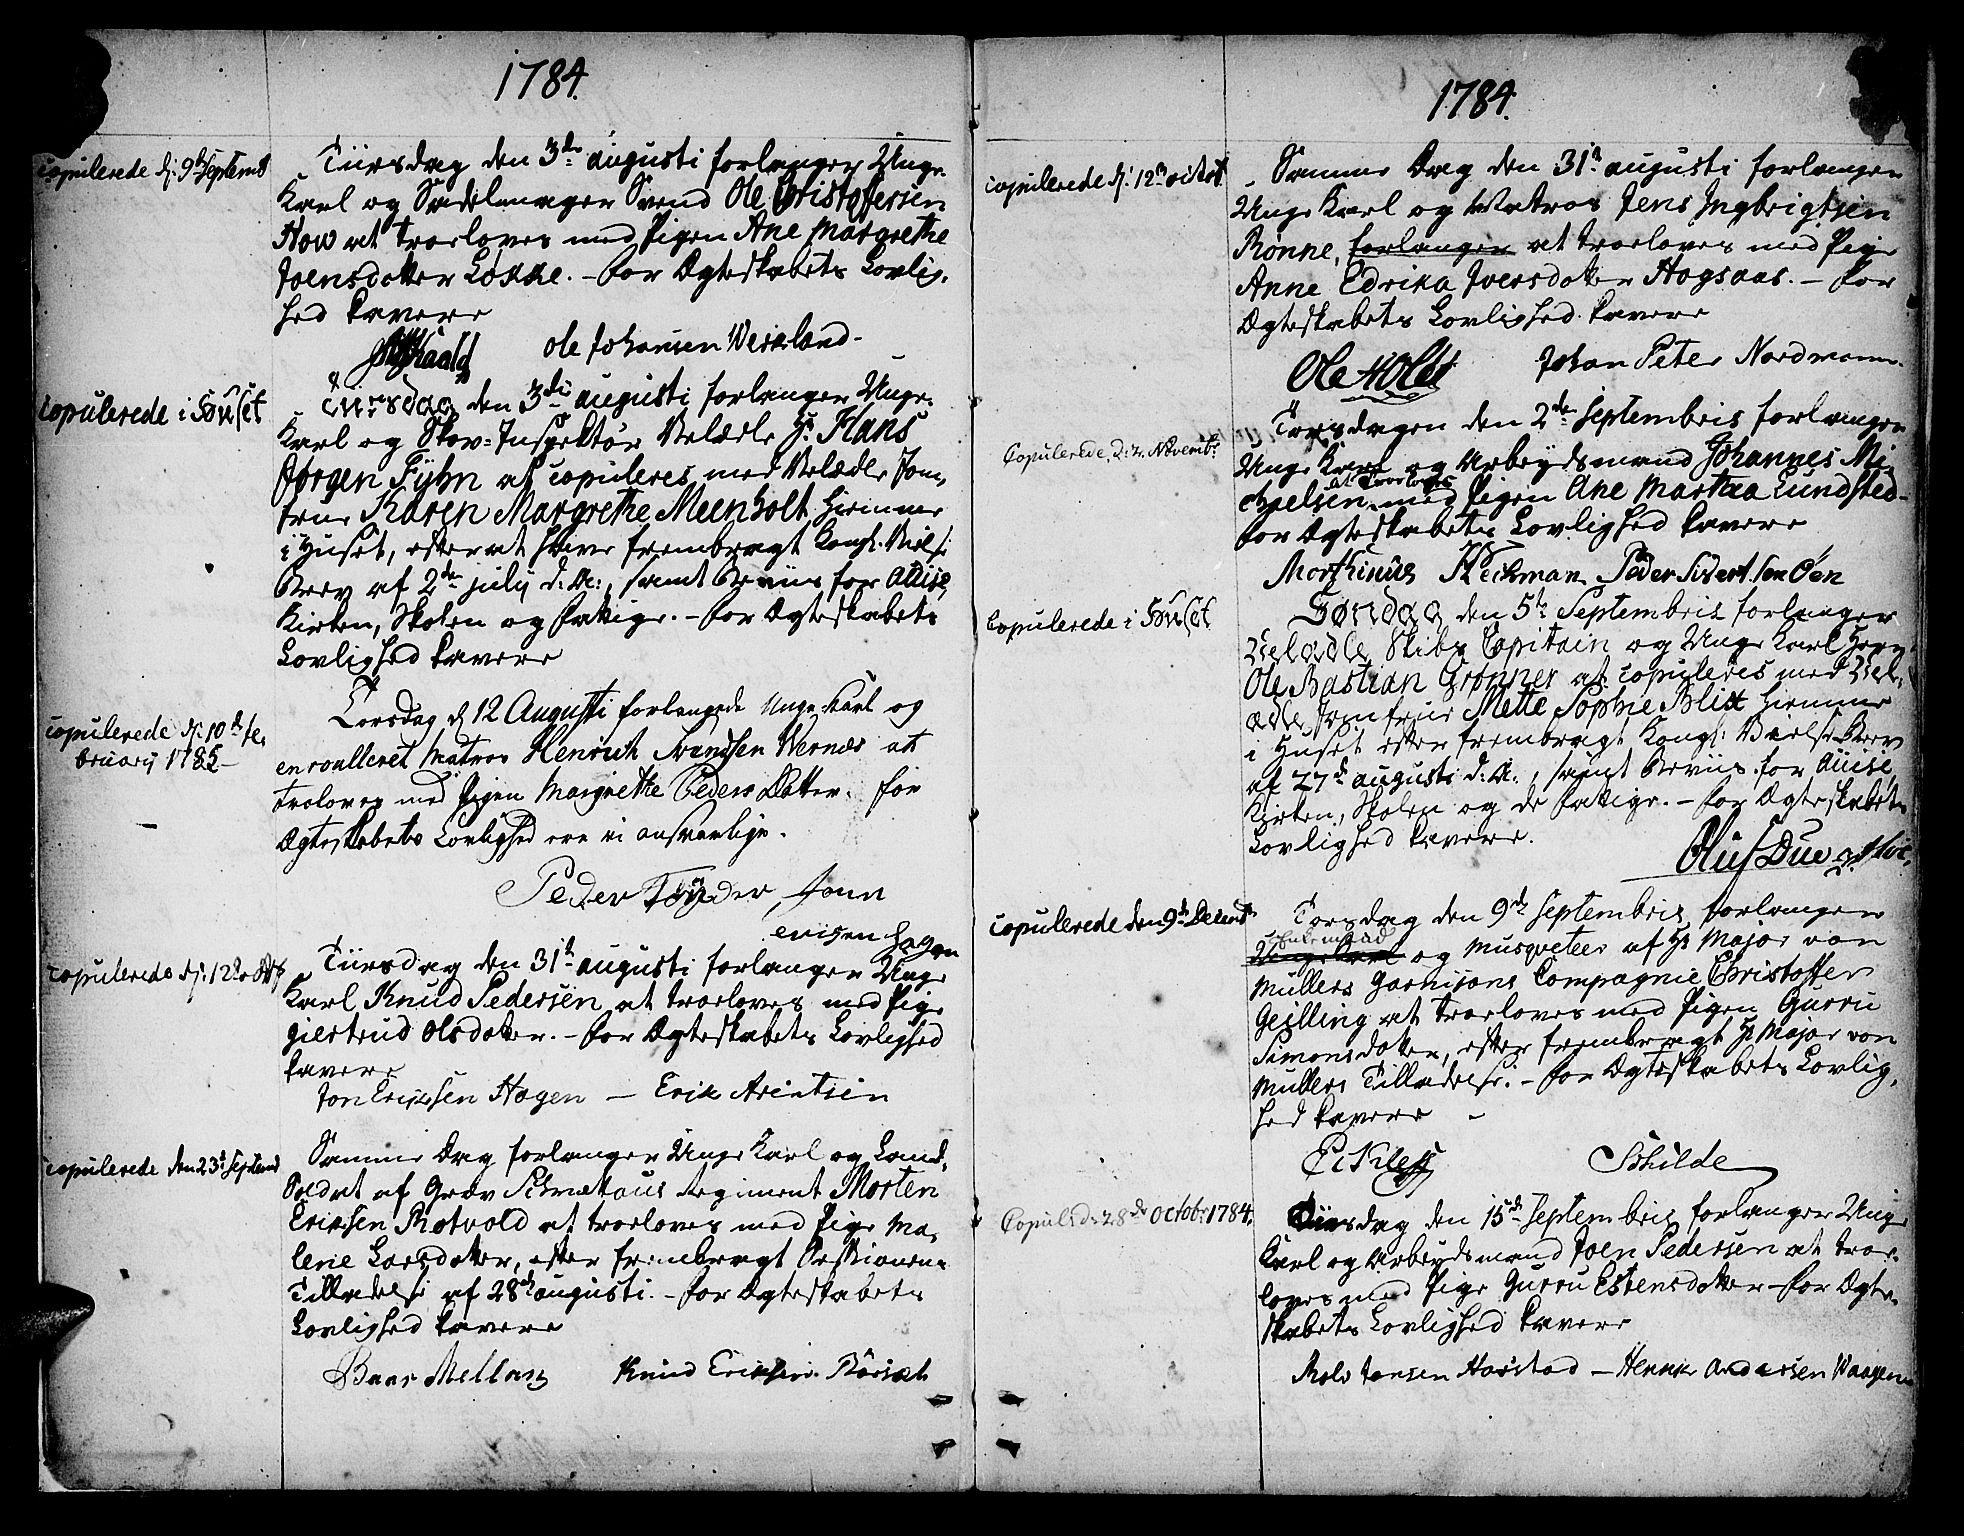 1784.
copulerede d: 9de Septemb
Tiirsdag den 3die augusti forlanger Unge
Karl og Sadelmager Svend Ole Christoffersen
How at troeloves med Pigen Ane Margrethe
Joensdatter Løkke. – for Ægteskabets Lovlig,
hed cavere
Ole Johansen Werkland.
copulerede i Huuset
Tiirsdag den 3die augusti forlanger Unge
Karl og Skov-Inspektør Velædle Hr. Hans
Jørgen Fÿhn at copuleres med Velædle Jom,
frue Karen Margrethe Meenholt hiemme
i Huset, efter at have frembragt Kongl. Vielse
Brev af 2den july d: A:, samt Beviis for Quise,
Kirken, Skolen og Fattige. – for Ægteskabets
Lovlighed cavere
copulerede d: 10de fe,
bruary 1785 –
Torsdag d 12 Augusti forlangede Unge Karl og
enroulleret Matros Henrich Svendsen Wernæs at
troloves med Pigen Margrethe Peders Datter. for
Ægteskabets Lovlighed ere vi ansvarlige.
Peder Tønder, Jonn
erichen Hagen
copulerede d: 12te Octb
Tiirsdag den 31te augusti forlanger Unge
Karl Knud Pedersen at troeloves med Pige
giertrud olsdatter. – for Ægteskabets Lovlighed
cavere
Jon Eriksen Hagen – Erik Arintsen
copulerede den 23de Septemb
Samme Dag forlanger Unge Karl og Land,
Soldat af Grev Schmettous Regiment Morten
Eriksen Rotvold at troeloves med Pige Ma,
lene Larsdatter, efter frembragt Sessionens
Tilladelse af 28de augusti. – for Ægteskabets
Lovlighed cavere
Knud Eriksen Børset
1784.
copulerede d: 12te octob
Samme Dag den 31te augusti forlanger
Unge Karl og Matros Jens Ingbrigtsen
Rønne, forlanger at troeloves med Pige
Anne Edrika Iversdatter Hogsaas. – for
Ægteskabets Lovlighed cavere
Ole Holst Johan Peter Nordmann.
Copulerede, d: 2. Novembr:
Torsdagen den 2den Septembris forlanger
Unge Karl og Arbeydsmand Johannes Mi,
at troeloves
chelsen med Pigen Ane Martha Lundsted –
for Ægteskabets Lovlighed cavere
Morthinus Heckman Peder Sivertsen Øen
copulerede i Huuset
Søndag den 5te Septembris forlanger
Velædle Skibs Capitain og Unge Karl Herr
Ole Bastian Grønner at copuleres med Vel,
ædle Jomfrue Mette Sophie Blix hiemme
i Huset efter frembragt Kongl: Vielse Brev
af 27de augusti d: A:, samt Beviis for Quise,
Kirken, Skolen og de Fattige. – for Ægteskabets
Lovlighed cavere.
Oluf Due
copulerede den 9de Decemb
Torsdag den 9de Septembris forlanger
Enkemand
Unge Karl og Musqveteer af Hr Major von
Mullers Garnisons Compagnie Christoffer
Geilling at troeloves med Pigen Gurru
Simonsdatter, efter frembragt Hr Major von
Mullers Tilladelse. – for Ægteskabets Lovlig,
hed cavere –
Schilde
Copul: d: 28de Octobr 1784.
Tiirsdag den 15de Septembris forlanger Unge
Karl og Arbeydsmand Joen Pedersen at troe,
loves med Pige Gurru Estensdatter – for Ægte,
skabets Lovlighed cavere
Rolv Jonsen Harstad – Henrik Andersen Waagen